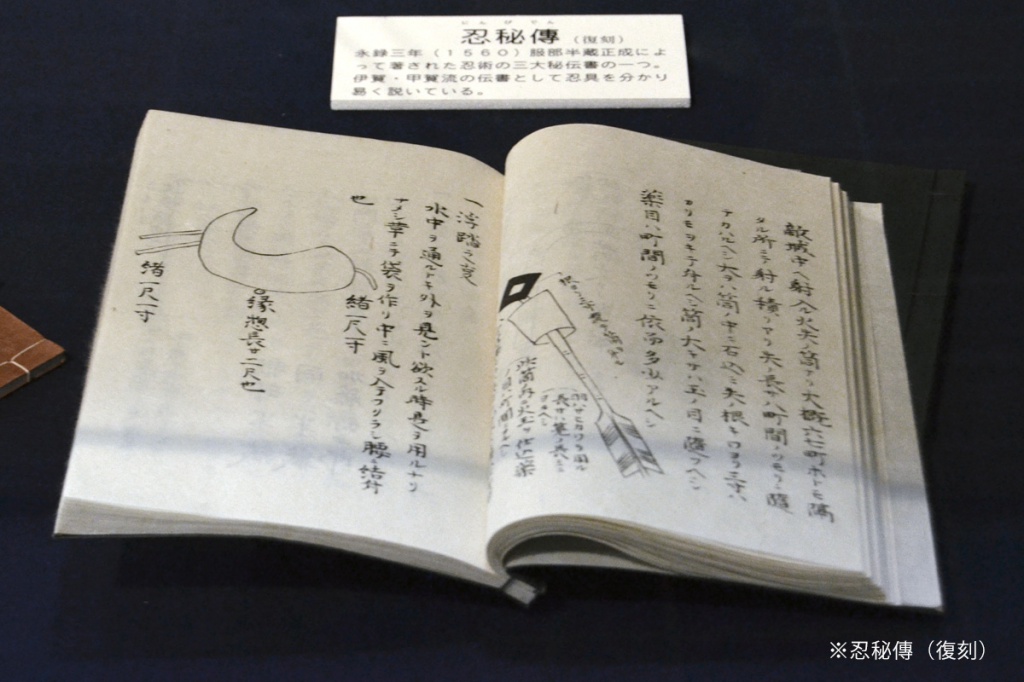 にんぴでん
忍秘傳（復刻）
永録三年（１５６０）服部半蔵正成によ
って著された忍術の三大秘伝書の一つ。
伊賀・甲賀流の伝書として忍具を分かり
易く説いている。
敵城中ヘ射入ル火矢ノ筒アリ大概六七町ホドモ隔
タル所ニテ射ル積リアリ矢ノ長サハ町間ノツモリニ随
大ヲハ筒ノ中ニ石込ニ矢ノ根キワヨリ三寸ハ
筒ノ大キサハ玉ノ目ニ随フヘシ
薬目ハ町間ノツモリニ依而多少アルヘシ
一浮踏之変
水中ヲ通ルトキ外ヲ見ント欲スル時是ヲ用ルナリ
ナメシ革ニテ袋ヲ作リ中ニ風ヲ入テフリテン腰ニ結付
也
緒一尺八寸
緒一尺八寸
※忍秘傳（復刻）